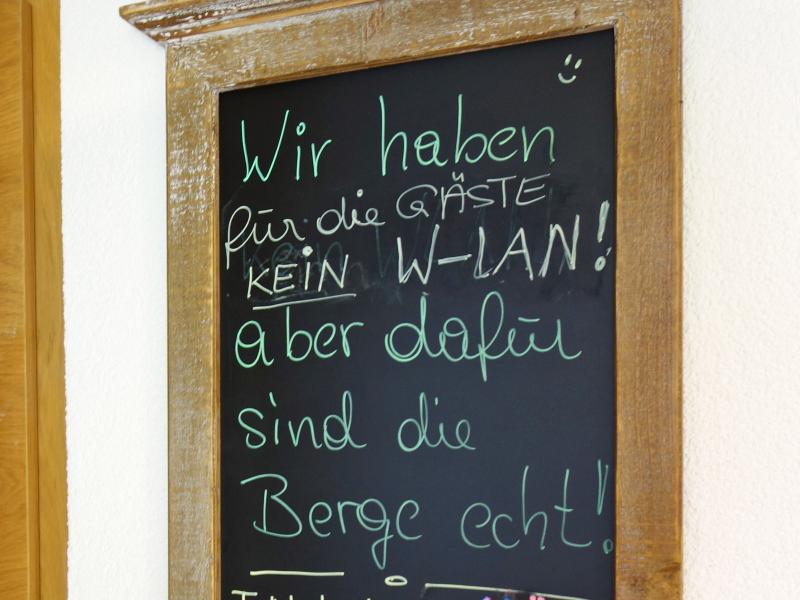 Wir haben
für die GÄSTE
KEIN W-LAN!
aber dafür
sind die
Berge echt!